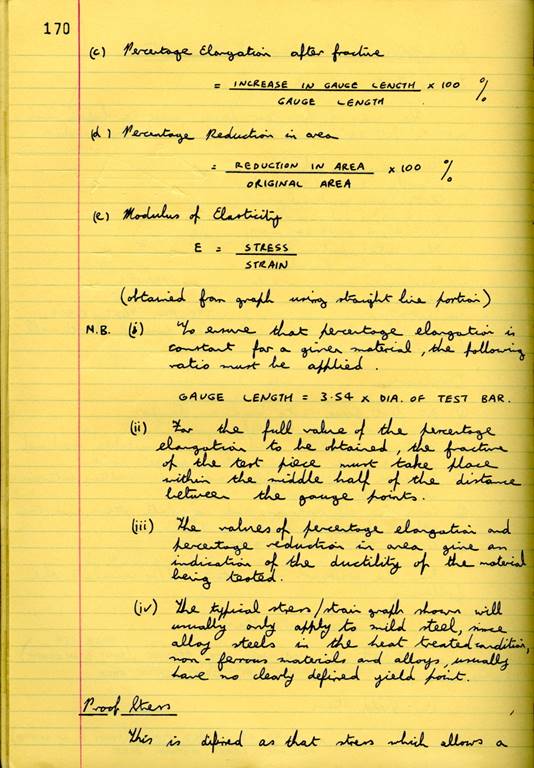 170
(c) Percentage Elongation after fracture
= INCREASE IN GAUGE LENGTH × 100 %
GAUGE LENGTH
(d) Percentage Reduction in area
= REDUCTION IN AREA × 100 %
ORIGINAL AREA
(e) Modulus of Elasticity
E = STRESS
STRAIN
(obtained from graph using straight line portion)
N.B. (i) To ensure that percentage elongation is
constant for a given material, the following
ratio must be applied.
GAUGE LENGTH = 3.54 × DIA. OF TEST BAR.
(ii) For the full value of the percentage
elongation to be obtained, the fracture
of the test piece must take place
within the middle half of the distance
between the gauge points.
(iii) The values of percentage elongation and
percentage reduction in area give an
indication of the ductility of the material
being tested.
(iv) The typical stress/strain graph shown will
usually only apply to mild steel, since
alloy steels in the heat treated condition,
non-ferrous materials and alloys, usually
have no clearly defined yield point.
Proof Stress
This is defined as that stress which allows a